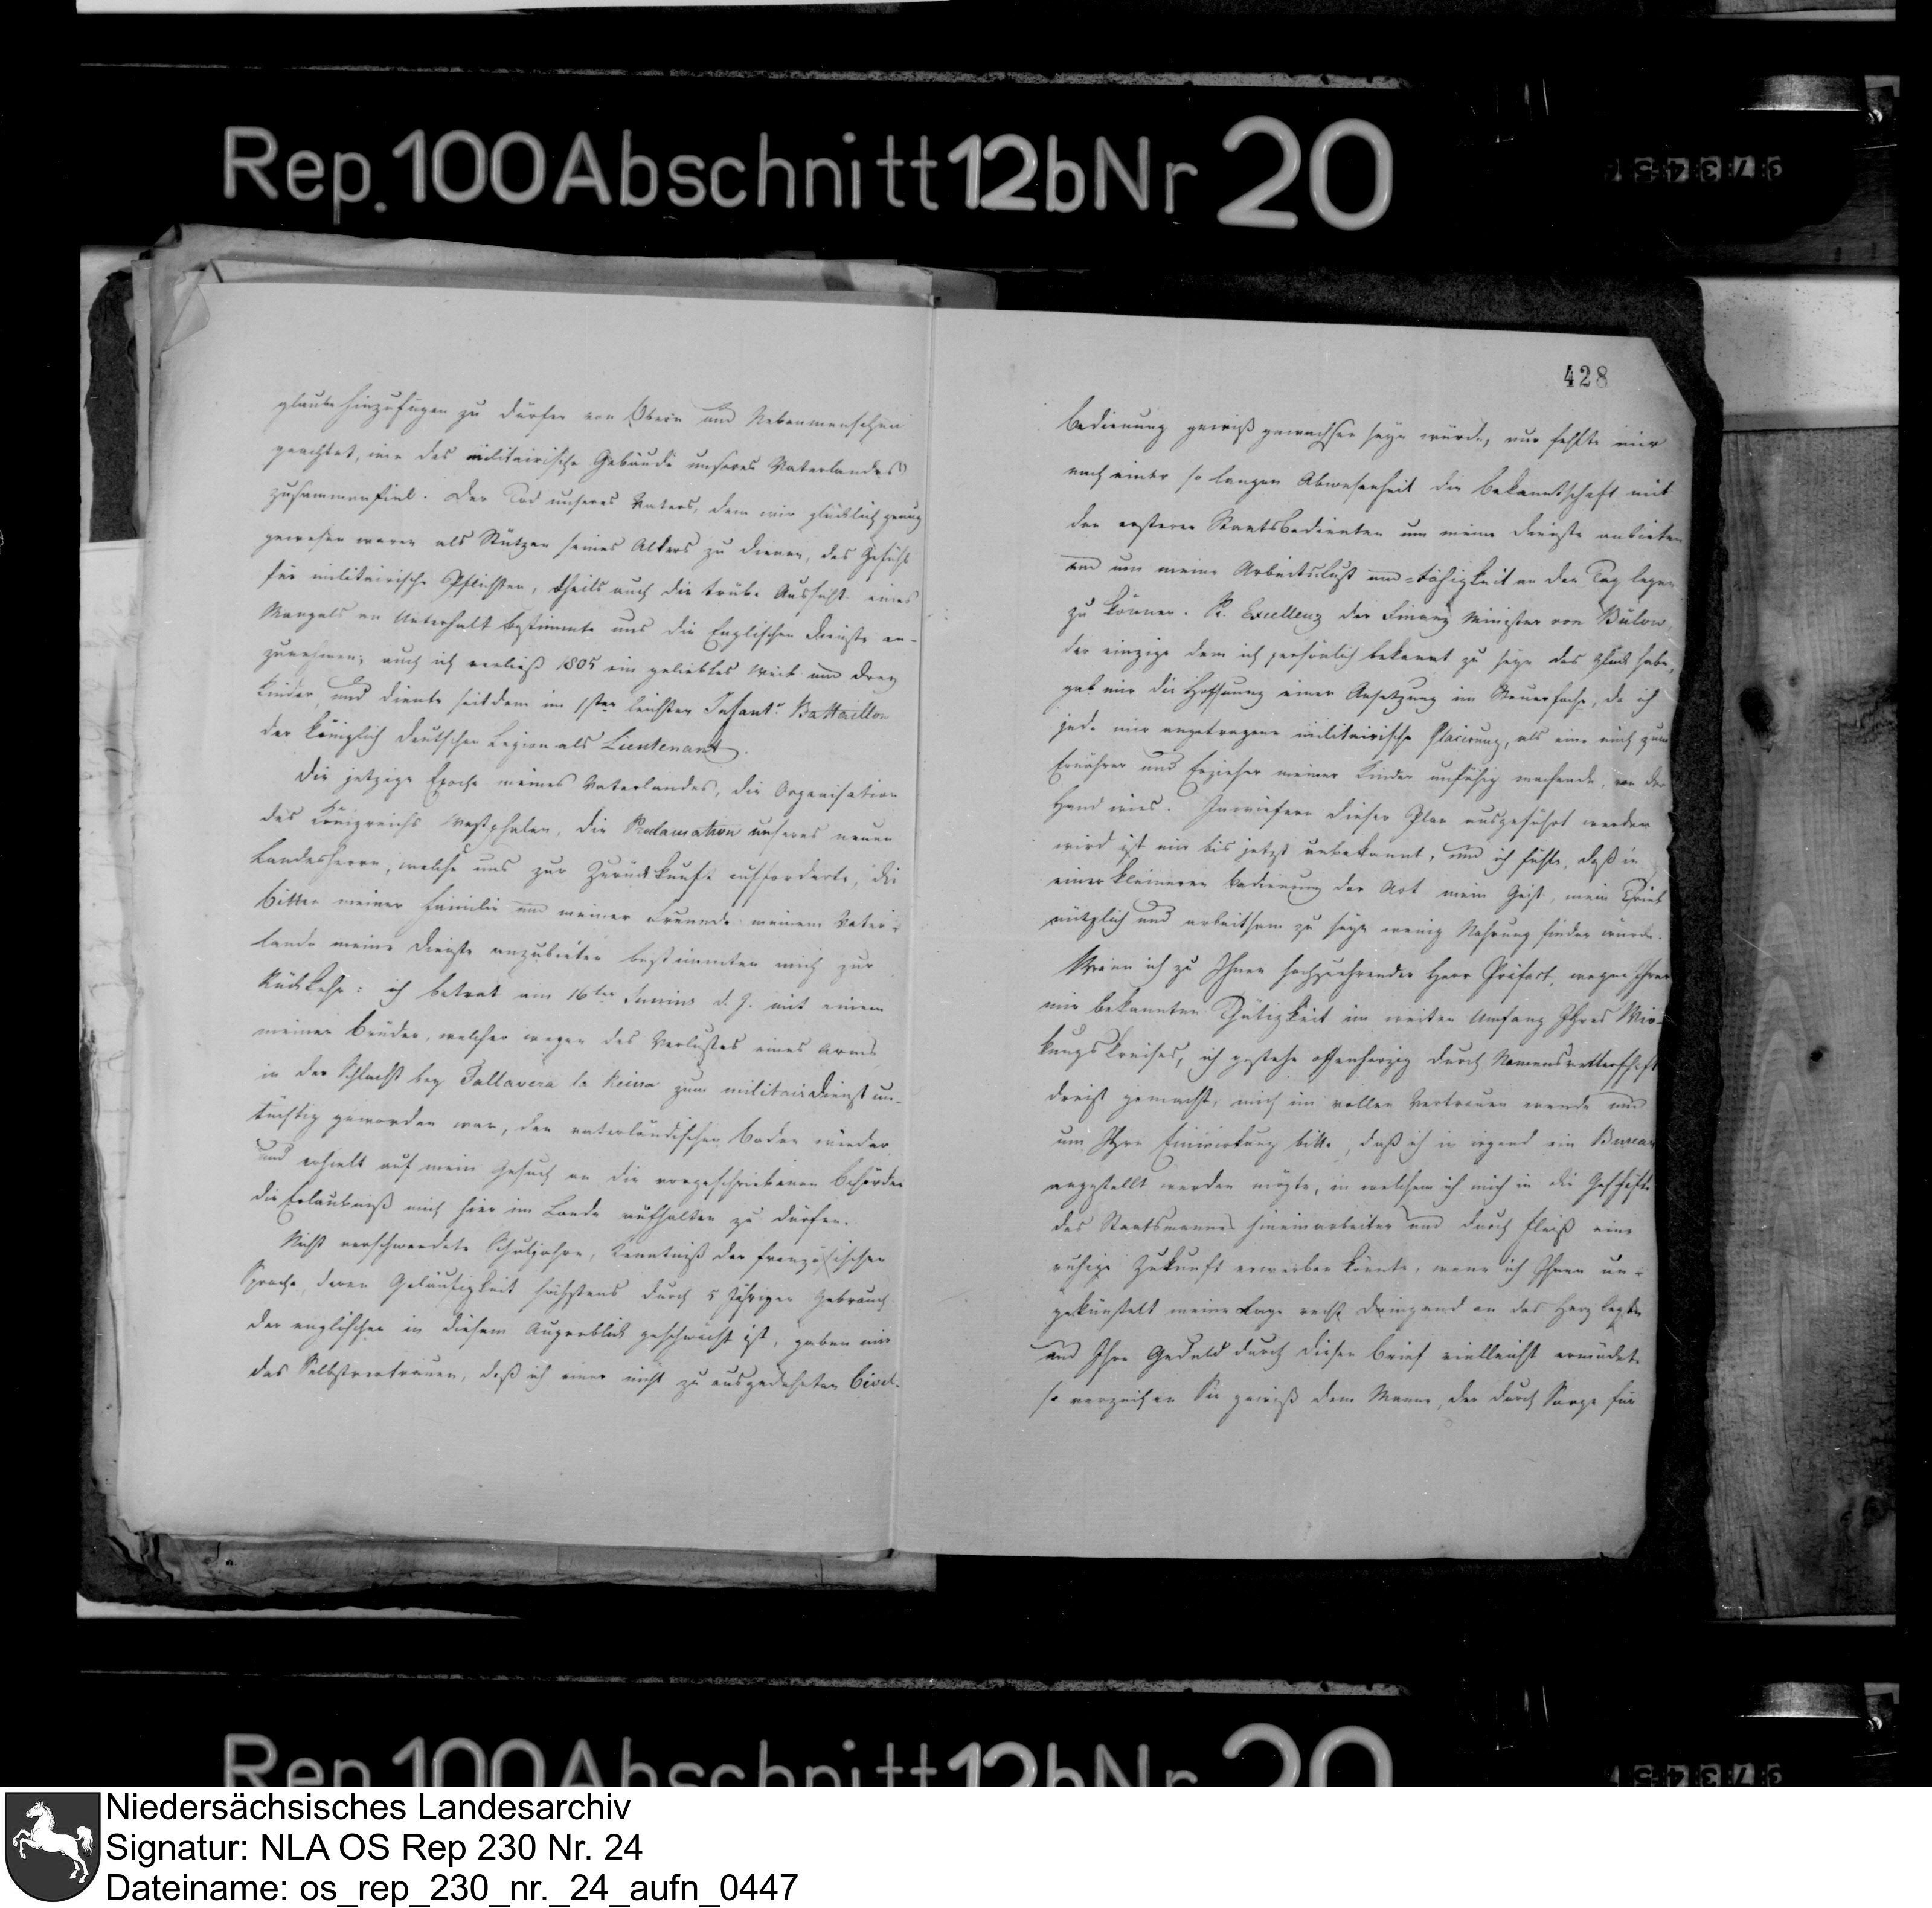 Rep. 100 Abschnitt 12b Nr 20
glaube hinzufügen zu dürfen von Obern und Nebenmenschen
geachtet, wie das militairische Gebäude unseres Vaterlandes
zusammenfiel. Der Tod unseres Vaters, dem wir glücklich genug
gewesen waren als Stützen seines Alters zu dienen, das Gefühl
für militairische Pflichten, theils auch die trübe Aussicht eines
Mangels an Unterhalt bestimmte uns die Englischen Dienste an-
zunehmen; auch ich verließ 1805 ein geliebtes Weib und drey
Kinder, und diente seitdem im 1sten leichten Infant. Battaillon
der königlich deutschen Legion als Lieutenant.
Die jetzige Epoche meines Vaterlandes, die Organisation
des Königreichs Westphalen, die Proclamation unseres neuen
Landesherrn, welche uns zur Zurückkunft aufforderte, die
Bitten meiner Familie und meiner Freunde meinem Vater-
lande meine Dienste anzubieten bestimmten mich zur
Rückkehr: ich betrat am 16ten Junius d. J. mit einem
meiner Brüder, welcher wegen des Verlustes eines Arms
in der Schlacht bey Tallavera la Reina zum militairdienst un-
tüchtig geworden war, den vaterländischen Boden wieder
und erhielt auf mein Gesuch an die vorgeschriebenen Behörden
die Erlaubniß mich hier im Lande aufhalten zu dürfen.
Nicht verschwendete Schuljahre, Kenntniß der französischen
Sprache, deren Geläufigkeit höchstens durch 5 jährigen Gebrauch
der englischen in diesem Augenblick geschwächt ist, gaben mir
das Selbstvertrauen, daß ich einer nicht zu ausgedehnten Civil-
428
Bedienung gewiß gewachsen seyn würde, nur fehlte mir
nach einer so langen Abwesenheit die Bekanntschaft mit
den ersteren Staatsbedienten um meine Dienste anbieten
und um meine Arbeitslust und -fähigkeit an den Tag legen
zu können. Sr. Excellenz der Finanz Minister von Bülow,
der einzige dem ich persönlich bekannt zu seyn das Glück habe,
gab mir die Hoffnung einer Ansetzung im Steuerfache, da ich
jede mir angetragene militairische Placirung, als eine mich zum
Ernährer und Erzieher meiner Kinder unfähig machende, von der
Hand wies. Inwiefern dieser Plan ausgeführt werden
wird ist mir bis jetzt unbekannt, und ich fühle, daß in
einer kleineren Bedienung der Art mein Geist, mein Trieb
nützlich und arbeitsam zu seyn wenig Nahrung finden würde.
Wenn ich zu Ihnen hochzuehrender Herr Präfect, wegen Ihrer
mir bekannten Thätigkeit im weiten Umfang Ihres Wir-
kungskreises, ich gestehe offenherzig durch Namensvetterschaft
dreist gemacht, mich im vollen Vertrauen wende und
um Ihre Einwirkung bitte, daß ich in irgend ein Bureau
angestellt werden mögte, in welchem ich mich in die Geschäfte
des Staatsmannes hineinarbeiten und durch Fleiß eine
ruhige Zukunft erwerben könnte, wenn ich Ihnen un-
gekünstelt meine Lage recht dringend an das Herz legte
und Ihre Geduld durch diesen Brief vielleicht ermüdete
so verzeihen Sie gewiß dem Manne, der durch Sorge für
Rep. 100 Abschnitt 12b Nr 20
Niedersächsisches Landesarchiv
Signatur: NLA OS Rep 230 Nr. 24
Dateiname: os_rep_230_nr._24_aufn_0447